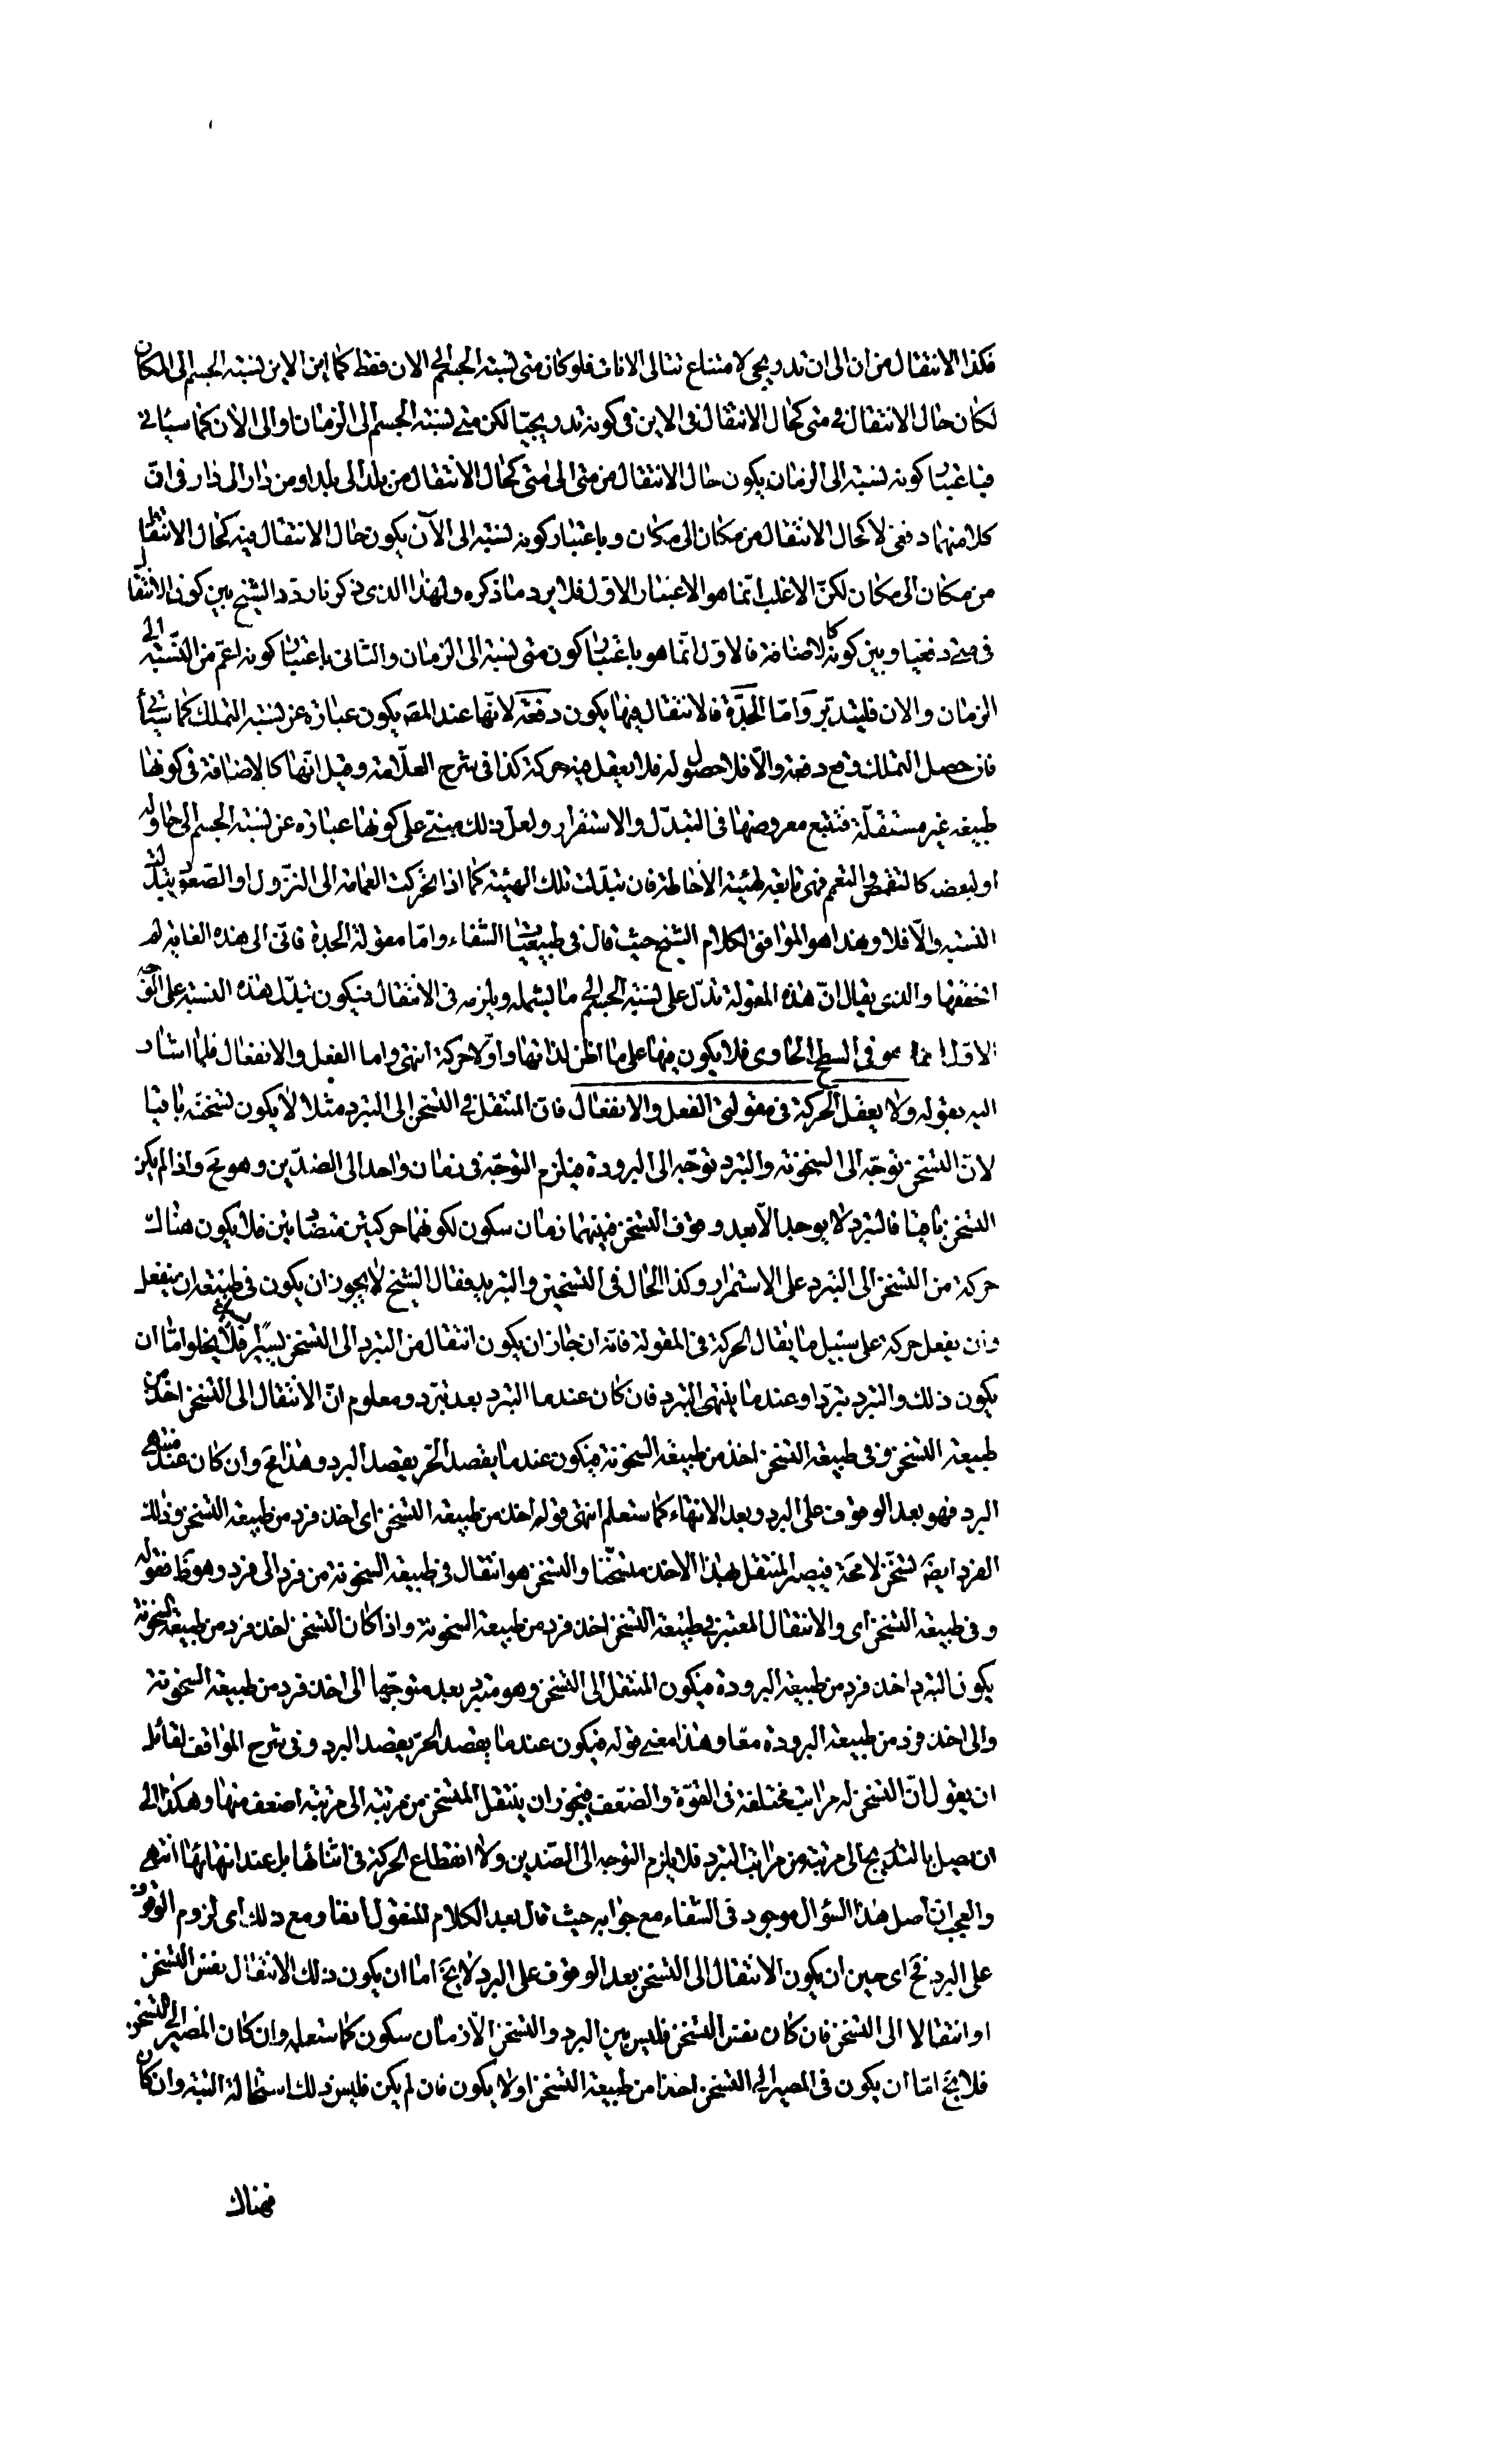 فكذا الانتقال من ان الى ان تدريجى لامتناع تتالى الانات فلو كان متى نسبة الجسم الى الان فقط كما ان الاين نسبة الجسم الى المكان
لكان حال الانتقال فى متى كحال الانتقال فى الاين فى كونه تدريجيّا لكن متى نسبة الجسم الى الزمان او الى الان كما سيأتى
فباعتبار كونه نسبة الى الزمان يكون حال الانتقال من متى الى متى كحال الانتقال من بلد الى بلد او من دار الى دار فى انّ
كلا منهما دفعى لا كحال الانتقال من مكان الى مكان وباعتبار كونه نسبة الى الآن يكون حال الانتقال فيه كحال الانتقال
من مكان الى مكان لكنّ الاغلب انّما هو الاعتبار الاوّل فلا يرد ما ذكره ولهذا الذى ذكرنا ردّد الشيخ بين كون الانتقال
فى متى دفعيا وبين كونه كالاضافة فالاوّل انّما هو باعتبار كون متى نسبة الى الزمان والثانى باعتبار كونه اعمّ من النّسبة الى
الزمان والان فليتدبّر وامّا الجدَة فالانتقال فيها يكون دفعَة لانّها عند المصَ يكون عبارة عن نسبة التملك كما سيأتى
فان حصل التملك وقع دفعة والّا فلا حصول له فلا يعقل فيه حركة كذا فى شرح العلّامة وقيل انّها كالاضافة فى كونها
طبيعة غير مستقلّة فتتبع معروضها فى التبدّل والاستقرار ولعلّ ذلك مبنىّ على كونها عبارة عن نسبة الجسم الى حاو له
او لبعضه كالتقمّص والتعمّم فهى تابعة لهيئة الاحاطة فان تبدّلت تلك الهيئة كما اذا تحركت العمامة الى النّزول او الصّعود تبدّلت
النسبة والّا فلا وهذا هو الموافق لكلام الشيخ حيث قال فى طبيعيّات الشفاء وامّا مقولة الجدة فانّى الى هذه الغاية لم
اتحققها والذى يقال انّ هذه المقولة تدلّ على نسبة الجسم الى ما يشمله ويلزمه فى الانتقال فيكون تبدّل هذه النسبة على الوجه
الاوّل انما هو فى السطح الحاوى فلا يكون فيها على ما اظن لذاتها واوّلا حركة انتهى واما الفعل والانفعال فلما اشار
اليه بقوله ولا يعقل الحركة فى مقولتى الفعل والانفعال فانّ المنتقل فى التسخن الى التبرد مثلا لا يكون تسخنه باقيا
لانّ التسخن توجّه الى السخونة والتبرد توجّه الى البرودة فيلزم التوجّه فى زمان واحد الى الضدّين وهو مح واذا لم يكن
التسخن باقيا فالتبرد لا يوجد الّا بعد وقوف التسخن فبينهما زمان سكون لكونهما حركتين متضادّتين فلا يكون هناك
حركة من التسخن الى التبرد على الاستمرار وكذا الحال فى التسخين والتبريد فقال الشيخ لا يجوز ان يكون فى طبيعة ان ينفعل
وان يفعل حركة على سبيل ما يقال الحركة فى المقولة فانّه ان جاز ان يكون انتقال من التبرد الى التسخن يسيرا يسيرا فلا يخلوا امّا ان
يكون ذلك والتبرد تبرّد او عند ما ينتهى التبرد فان كان عند ما التبرد بعد تبرّد ومعلوم انّ الانتقال الى التسخن اخذ من
طبيعة التسخن وفى طبيعة التسخن اخذ من طبيعة السخونة فيكون عند ما يقصد الحرّ يقصد البرد وهذا مح وان كان عند منتهى
البرد فهو بعد الوقوف على البرد وبعد الانتهاء كما ستعلم انتهى قوله اخذ من طبيعة التسخن اى اخذ فرد من طبيعة التسخن وذلك
الفرد ايضَ تسخّن لا محَة فيصير المنتقل بهذا الاخذ متسخّنا والتسخن هو انتقال فى طبيعة السخونة من فرد الى فرد وهو ظَ فقوله
وفى طبيعة التسخن اى والانتقال المعتبر فى طبيعة التسخن اخذ فرد من طبيعة السخونة واذا كان التسخن اخذ فرد من طبيعة السخونة
يكون التبرد اخذ فرد من طبيعة البرودة فيكون المنتقل الى التسخن وهو متبرد بعد متوجّها الى اخذ فرد من طبيعة السخونة
والى اخذ فرد من طبيعة البرودة معًا وهذا معنى قوله فيكون عند ما يقصد الحرّ يقصد البرد وفى شرح المواقف لقائل
ان يقول انّ التسخن له مراتب مختلفة فى القوّة والضعف فيجوز ان ينتقل المتسخن من مرتبة الى مرتبة اضعف منها وهكذا الى
ان يصل بالتدريج الى مرتبة من مراتب التبرد فلا يلزم التوجه الى الضدين ولا انقطاع الحركة فى اثنائها بل عند انتهائها انتهى
والعجب انّ اصل هذا السؤال موجود فى الشفاء مع جوابه حيث قال بعد الكلام المنقول انفا ومع ذلك اى لزوم الوقوف
على البرد فح اى حين ان يكون الانتقال الى التسخن بعد الوقوف على البرد لا يخَ اما ان يكون ذلك الانتقال نفس التسخن
او انتقالا الى التسخن فان كان نفس التسخن فليس بين البرد والتسخن الّا زمان سكون كما ستعلمه وان كان المصير الى التسخن
فلا يخَ امّا ان يكون فى المصير الى التسخن اخذا من طبيعة التسخن او لا يكون فان لم يكن فليس ذلك استحالة البتة وان كان
فهناك